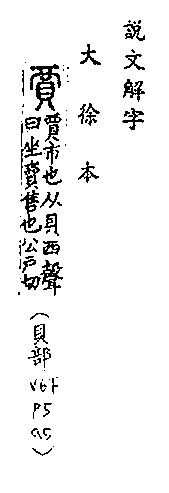 說文解字
大徐本
賈 賈市也从貝襾聲一
曰坐賣售也公戶切
(貝部 V6下 P5 a5)